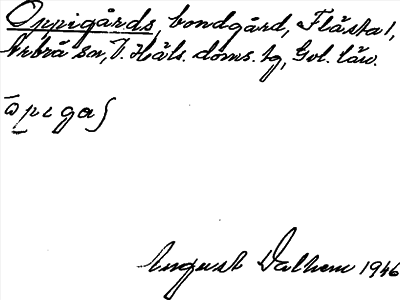 Oppigårds, bondgård, Flästa 1,
Arbrå sn, V. Häls. doms. tg, Gvl. län.
ōpɩgaʃ
August Dalhem 1946